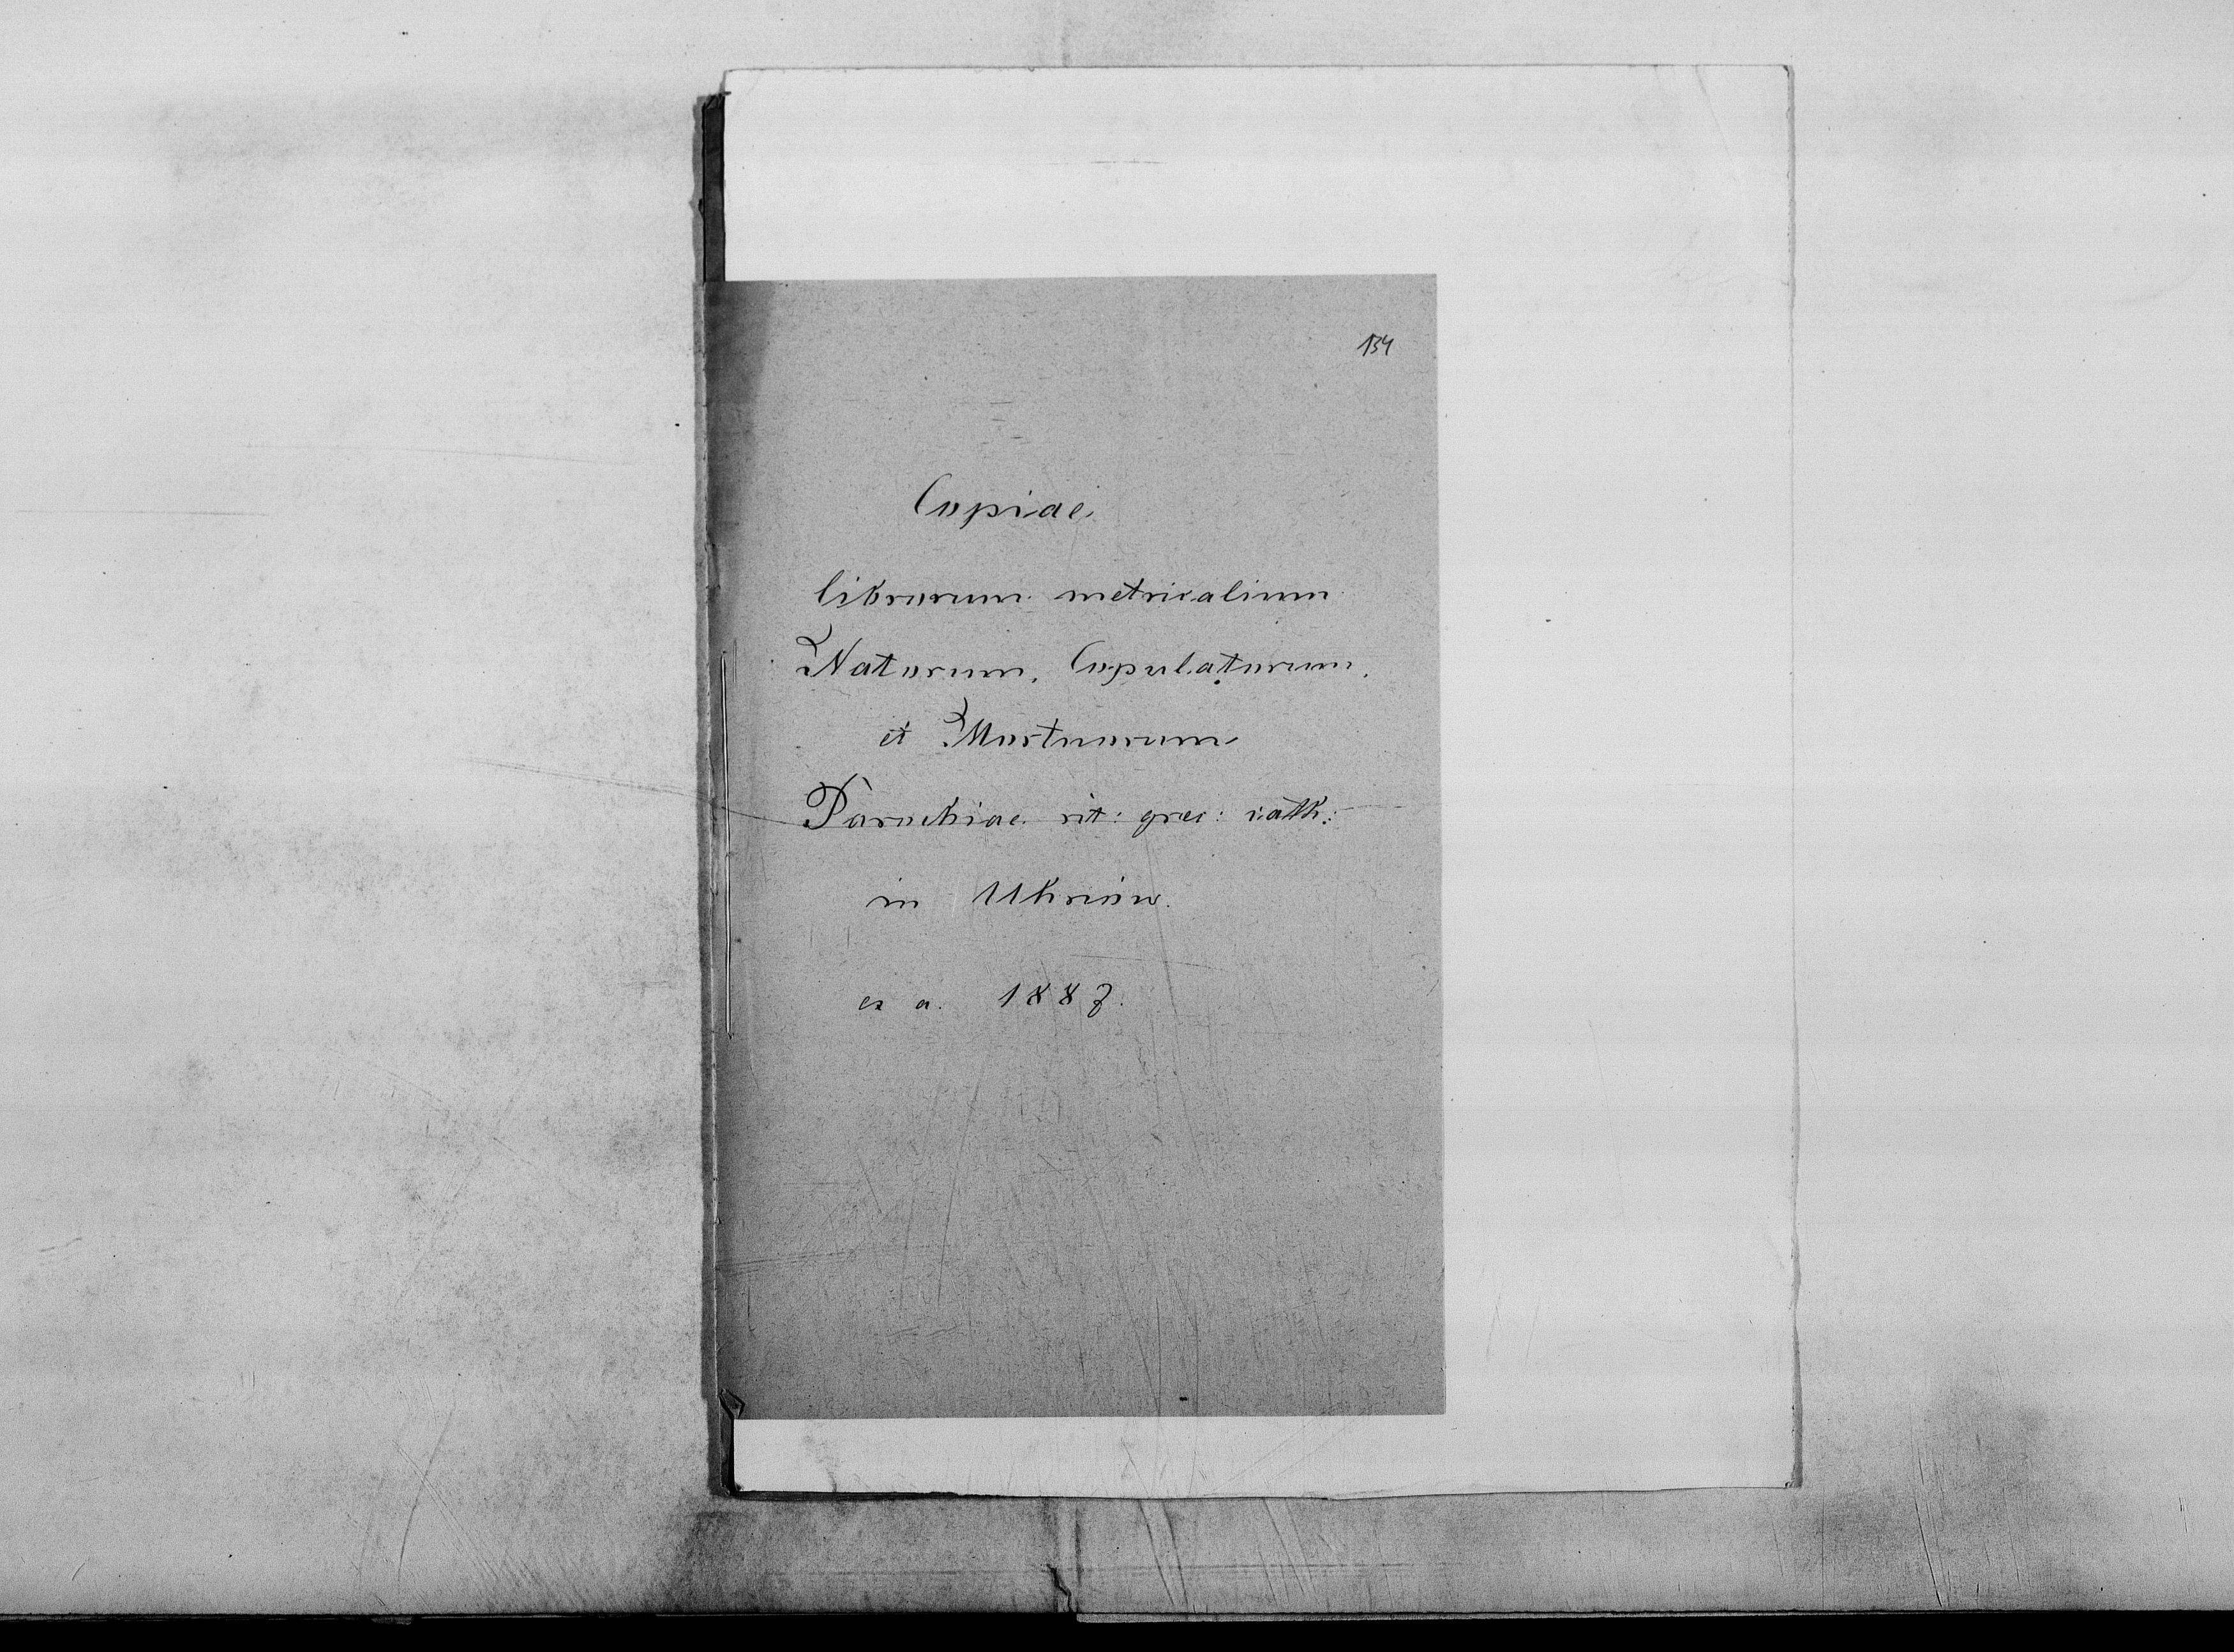 134
Copiae
librorum metricalium
Natorum, Copulatorum,
et Mortuorum
Parochiae rit: grec: cath:
in Uhrinów.
ex a. 1887.